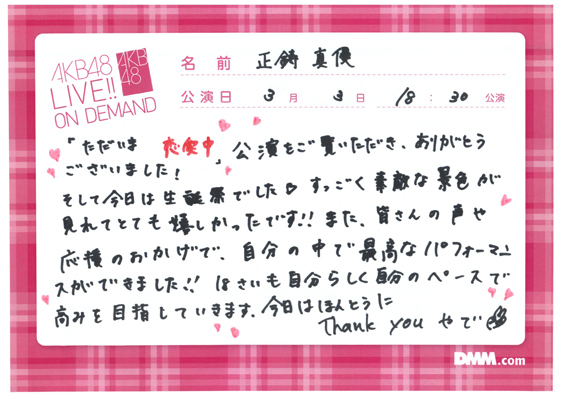 AKB48
LIVE!!
ON DEMAND
AKB
48
名前 正鋳真優
公演日 3月 3日 18:30 公演
「ただいま 恋愛中」公演をご覧いただき、ありがとう
ございました!
そして今日は生誕祭でした♡ すっごく素敵な景色が
見れてとても嬉しかったです!! また、皆さんの声や
応援のおかげで、自分の中で最高なパフォーマン
スができました!! 18さいも自分らしく自分のペースで
高みを目指していきます、今日はほんとうに
Thank you やで
DMM.com